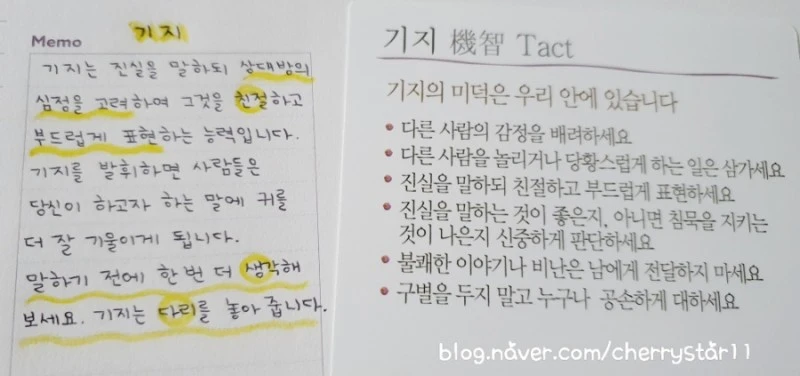 기지
Memo
기지는 진실을 말하되 상대방의
심정을 고려하여 그것을 친절하고
부드럽게 표현하는 능력입니다.
기지를 발휘하면 사람들은
당신이 하고자 하는 말에 귀를
더 잘 기울이게 됩니다.
말하기 전에 한번 더 생각해
보세요. 기지는 다리를 놓아 줍니다.
기지 機智 Tact
기지의 미덕은 우리 안에 있습니다
• 다른 사람의 감정을 배려하세요
• 다른 사람을 놀리거나 당황스럽게 하는 일은 삼가세요
• 진실을 말하되 친절하고 부드럽게 표현하세요
• 진실을 말하는 것이 좋은지, 아니면 침묵을 지키는
것이 나은지 신중하게 판단하세요
• 불쾌한 이야기나 비난은 남에게 전달하지 마세요
• 구별을 두지 말고 누구나 공손하게 대하세요
blog.naver.com/cherrystar11